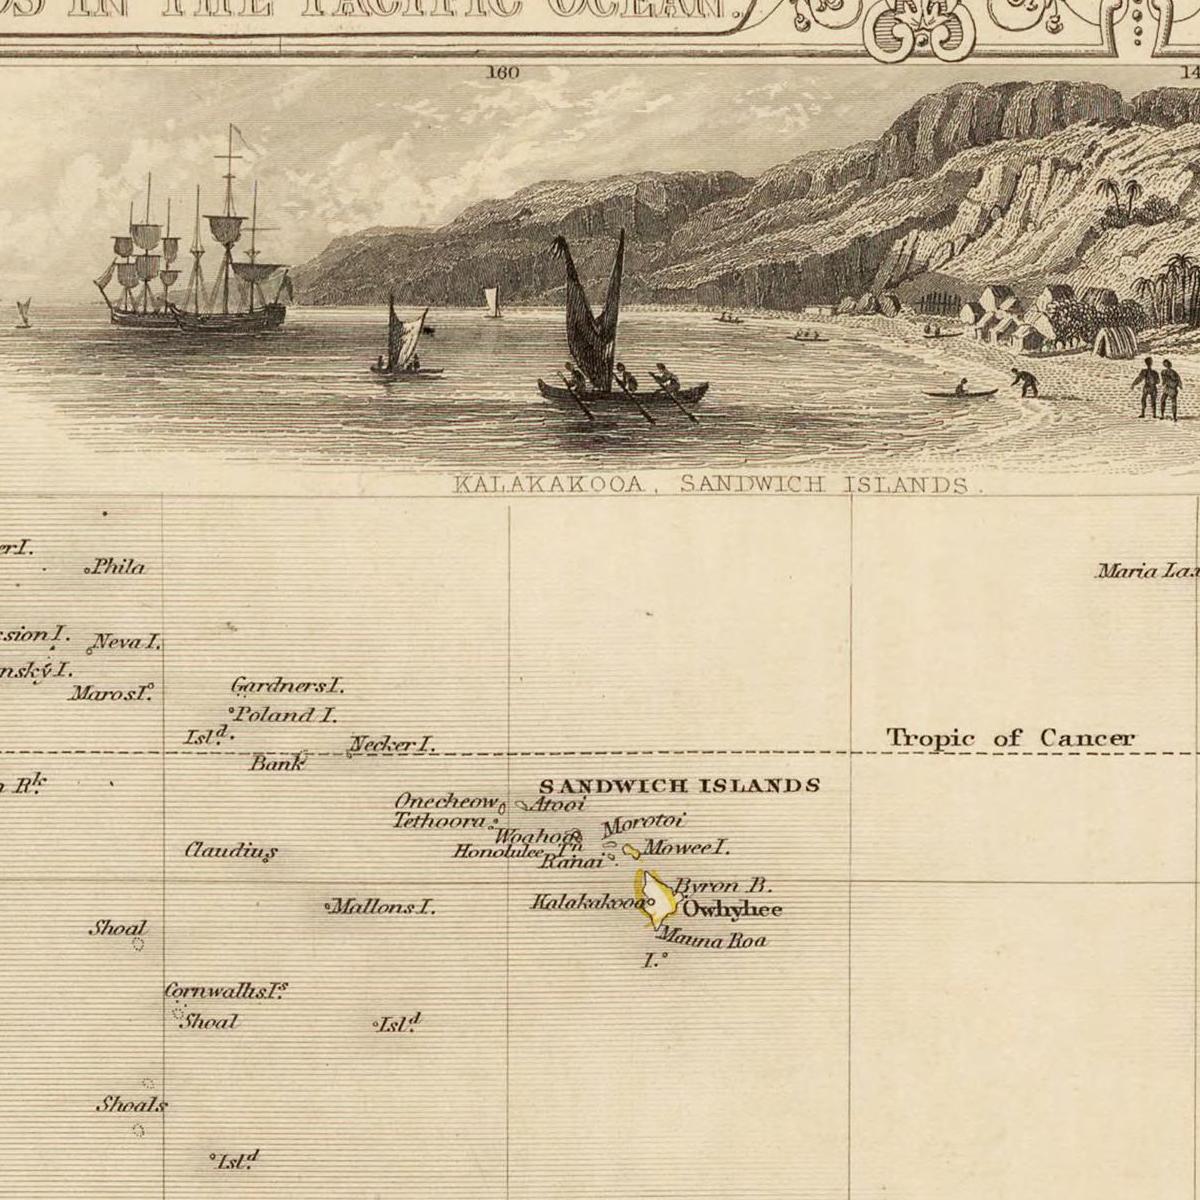 IN THE PACIFIC OCEAN.
160
KALAKAKOOA, SANDWICH ISLANDS.
Phila
Maria
Neva I.
Maros Iº.
Gardners I.
Poland I.
Islᵈ.
Necker I.
Tropic of Cancer
Bank
Rᵏ.
SANDWICH ISLANDS
Onecheow
Atooi
Tethoora
Morotoi
Woahoo
Honolulee Tⁿ
Mowee I.
Ranai
Claudius
Byron B.
Kalakakooa
Owhyhee
Mallons I.
Mauna Roa
Shoal
I.º
Cornwallis Iˢ.
Shoal
Islᵈ.
Shoals
Islᵈ.